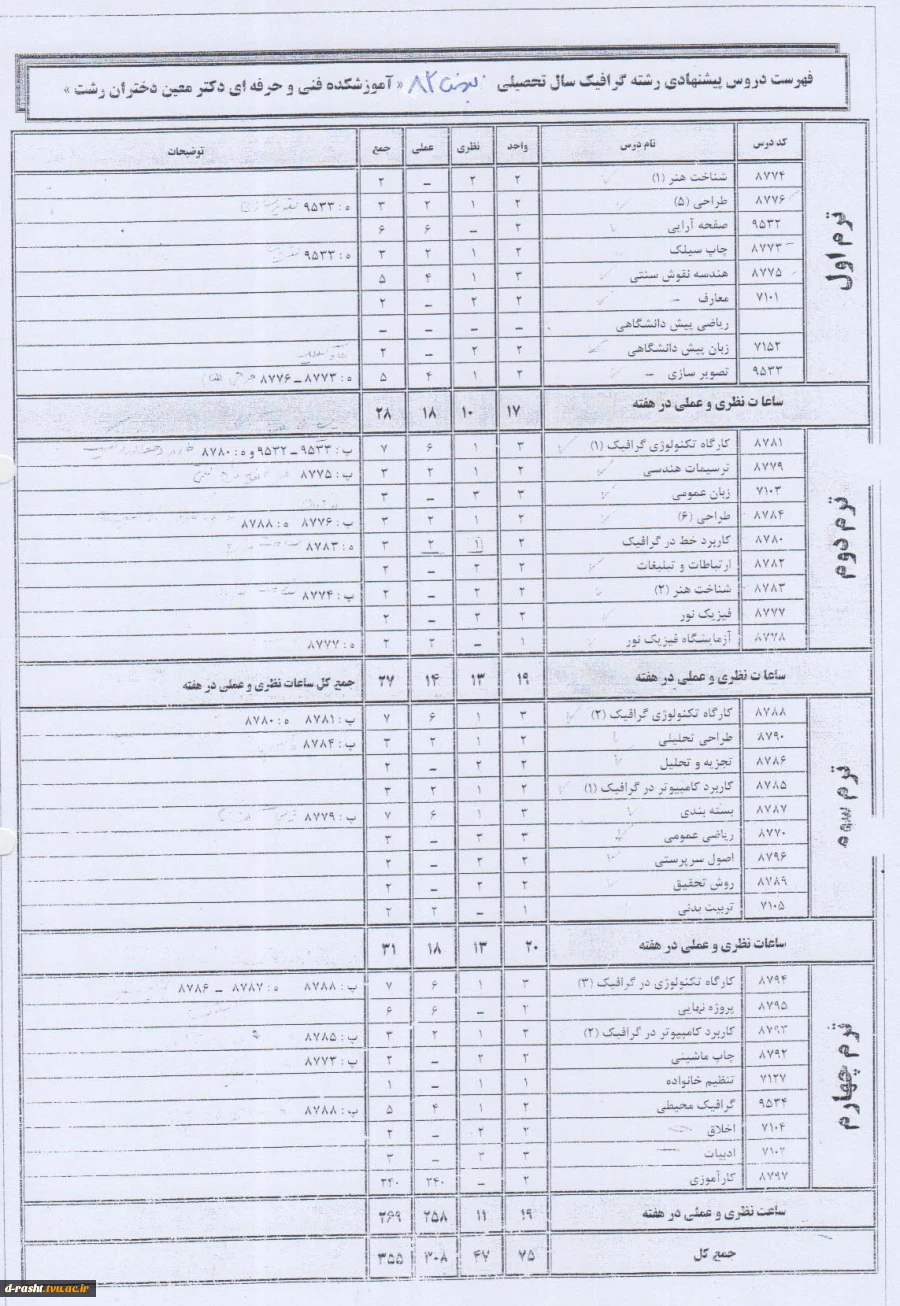 فهرست دروس پیشنهادی رشته گرافیک سال تحصیلی ۸۲ « آموزشکده فنی و حرفه ای دکتر معین دختران رشت »
کد درس نام درس واحد نظری عملی جمع توضیحات
ترم اول
۸۷۷۴ شناخت هنر (۱) ۲ ۲ _ ۲
۸۷۷۶ طراحی (۵) ۲ ۱ ۲ ۳ ه : ۹۵۳۳
۹۵۳۲ صفحه آرایی ۲ _ ۶ ۶
۸۷۷۳ چاپ سیلک ۲ ۱ ۲ ۳ ه : ۹۵۳۳
۸۷۷۵ هندسه نقوش سنتی ۳ ۱ ۴ ۵
۷۱۰۱ معارف ۲ ۲ _ ۲
ریاضی پیش دانشگاهی _ _ _ _
۷۱۵۲ زبان پیش دانشگاهی ۲ ۲ _ ۲
۹۵۳۳ تصویر سازی ۲ ۱ ۴ ۵ ه : ۸۷۷۳ _ ۸۷۷۶
ساعات نظری و عملی در هفته ۱۷ ۱۰ ۱۸ ۲۸
ترم دوم
۸۷۸۱ کارگاه تکنولوژی گرافیک (۱) ۳ ۱ ۶ ۷ پ : ۹۵۳۳ _ ۹۵۳۲ و ه : ۸۷۸۰
۸۷۷۹ ترسیمات هندسی ۲ ۱ ۲ ۳ پ : ۸۷۷۵
۷۱۰۳ زبان عمومی ۳ ۳ _ ۳
۸۷۸۴ طراحی (۶) ۲ ۱ ۲ ۳ پ : ۸۷۷۶ ه : ۸۷۸۸
۸۷۸۰ کاربرد خط در گرافیک ۲ ۱ ۲ ۳ ه : ۸۷۸۳
۸۷۸۲ ارتباطات و تبلیغات ۲ ۲ _ ۲
۸۷۸۳ شناخت هنر (۲) ۲ ۲ _ ۲ پ : ۸۷۷۴
۸۷۷۷ فیزیک نور ۲ ۲ _ ۲
۸۷۷۸ آزمایشگاه فیزیک نور ۱ _ ۲ ۲ ه : ۸۷۷۷
ساعات نظری و عملی در هفته ۱۹ ۱۳ ۱۴ ۲۷ جمع کل ساعات نظری و عملی در هفته
ترم سوم
۸۷۸۸ کارگاه تکنولوژی گرافیک (۲) ۳ ۱ ۶ ۷ پ : ۸۷۸۱ ه : ۸۷۸۰
۸۷۹۰ طراحی تحلیلی ۲ ۱ ۲ ۳ پ : ۸۷۸۴
۸۷۸۶ تجزیه و تحلیل ۲ ۲ _ ۲
۸۷۸۵ کاربرد کامپیوتر در گرافیک (۱) ۲ ۱ ۲ ۳
۸۷۸۷ بسته بندی ۳ ۱ ۶ ۷ پ : ۸۷۷۹
۸۷۷۰ ریاضی عمومی ۳ ۳ _ ۳
۸۷۹۶ اصول سرپرستی ۲ ۲ _ ۲
۸۷۸۹ روش تحقیق ۲ ۲ _ ۲
۷۱۰۵ تربیت بدنی ۱ _ ۲ ۲
ساعات نظری و عملی در هفته ۲۰ ۱۳ ۱۸ ۳۱
ترم چهارم
۸۷۹۴ کارگاه تکنولوژی در گرافیک (۳) ۳ ۱ ۶ ۷ پ : ۸۷۸۸ ه : ۸۷۸۷ _ ۸۷۸۶
۸۷۹۵ پروژه نهایی ۲ _ ۶ ۶
۸۷۹۳ کاربرد کامپیوتر در گرافیک (۲) ۲ ۱ ۲ ۳ پ : ۸۷۸۵
۸۷۹۲ چاپ ماشینی ۲ ۲ _ ۲ پ : ۸۷۷۳
۷۱۲۷ تنظیم خانواده ۱ ۱ _ ۱
۹۵۳۴ گرافیک محیطی ۲ ۱ ۴ ۵ پ : ۸۷۸۸
۷۱۰۴ اخلاق ۲ ۲ _ ۲
۷۱۰۲ ادبیات ۳ ۳ _ ۳
۸۷۹۷ کارآموزی ۲ _ ۲۴۰ ۲۴۰
ساعت نظری و عملی در هفته ۱۹ ۱۱ ۲۵۸ ۲۶۹
جمع کل ۷۵ ۴۷ ۳۰۸ ۳۵۵
d-rasht.tvu.ac.ir